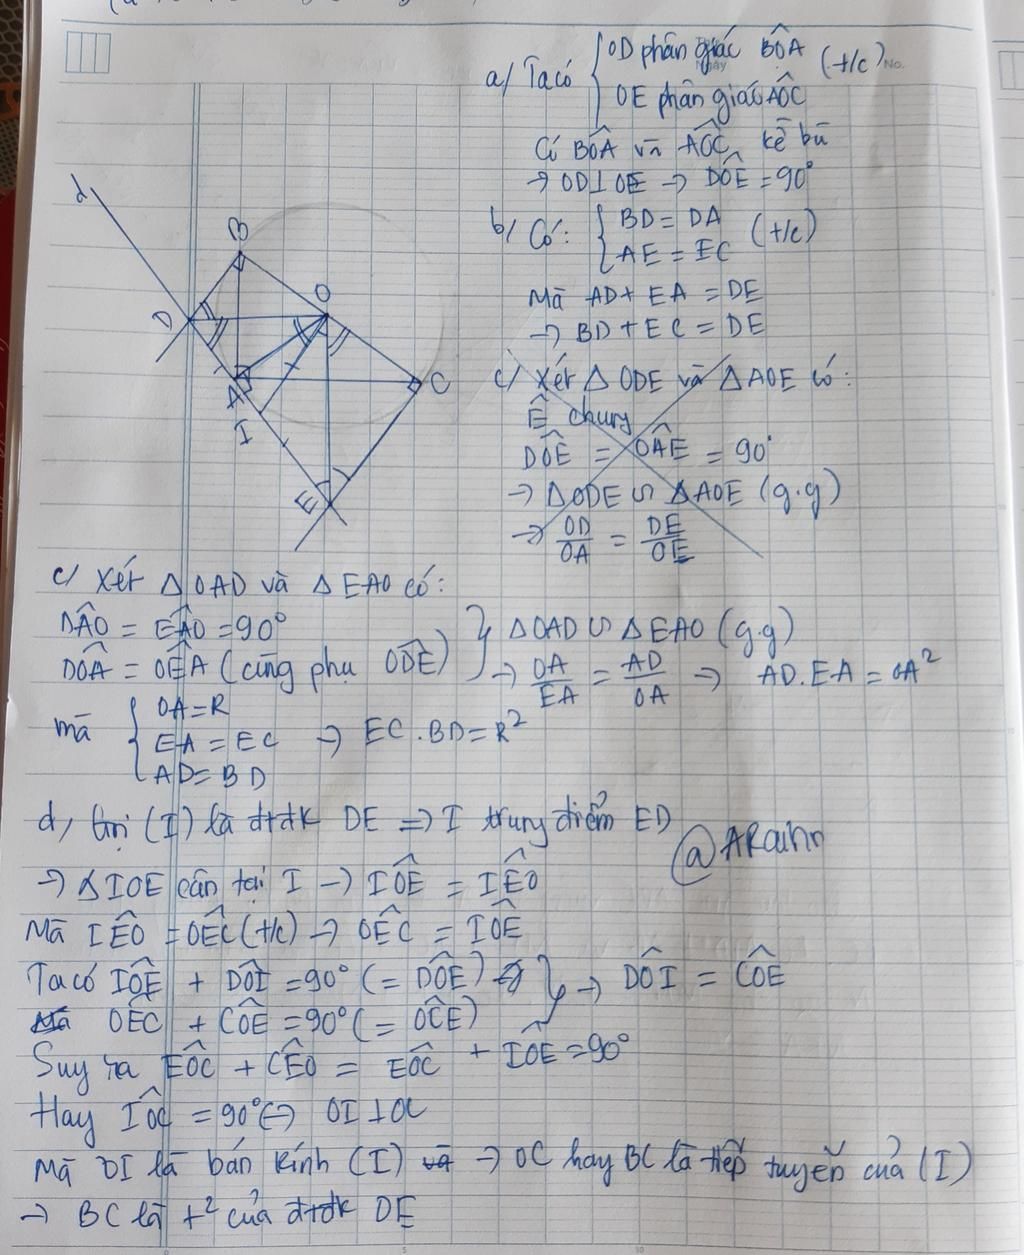 a/ Ta có { OD phân giác BÔA
OE phân giác AÔC (t/c)
Có BÔA và AÔC kề bù
→ OD⊥OE → DÔE = 90°
b/ Có: { BD = DA
AE = EC (t/c)
Mà AD + EA = DE
→ BD + EC = DE
c/ Xét △ODE và △AOE có:
Ê chung
DÔE = OÂE = 90°
→ △ODE ∽ △AOE (g.g)
→ OD/OA = DE/OE
d
B
O
D
A
C
I
E
c/ Xét △OAD và △EAO có:
DÂO = EÂO = 90°
DÔA = OÊA (cùng phụ ODE)
} △OAD ∽ △EAO (g.g)
→ OA/EA = AD/OA → AD.EA = OA²
mà { OA = R
EA = EC → EC.BD = R²
AD = BD
d, Gọi (I) là đtđk DE => I trung điểm ED
@ARainn
→ △IOE cân tại I → IÔE = IÊO
Mà IÊO = OÊC (t/c) → OÊC = IÔE
Ta có IÔE + DÔI = 90° (= DÔE) } → DÔI = CÔE
Mà OÊC + CÔE = 90° (= OĈE)
Suy ra EÔC + CÊO = EÔC + IÔE = 90°
Hay IÔC = 90° ⇔ OI ⊥ OC
Mà OI là bán kính (I) và → OC hay BC là tiếp tuyến của (I)
→ BC là t² của đtđk DE